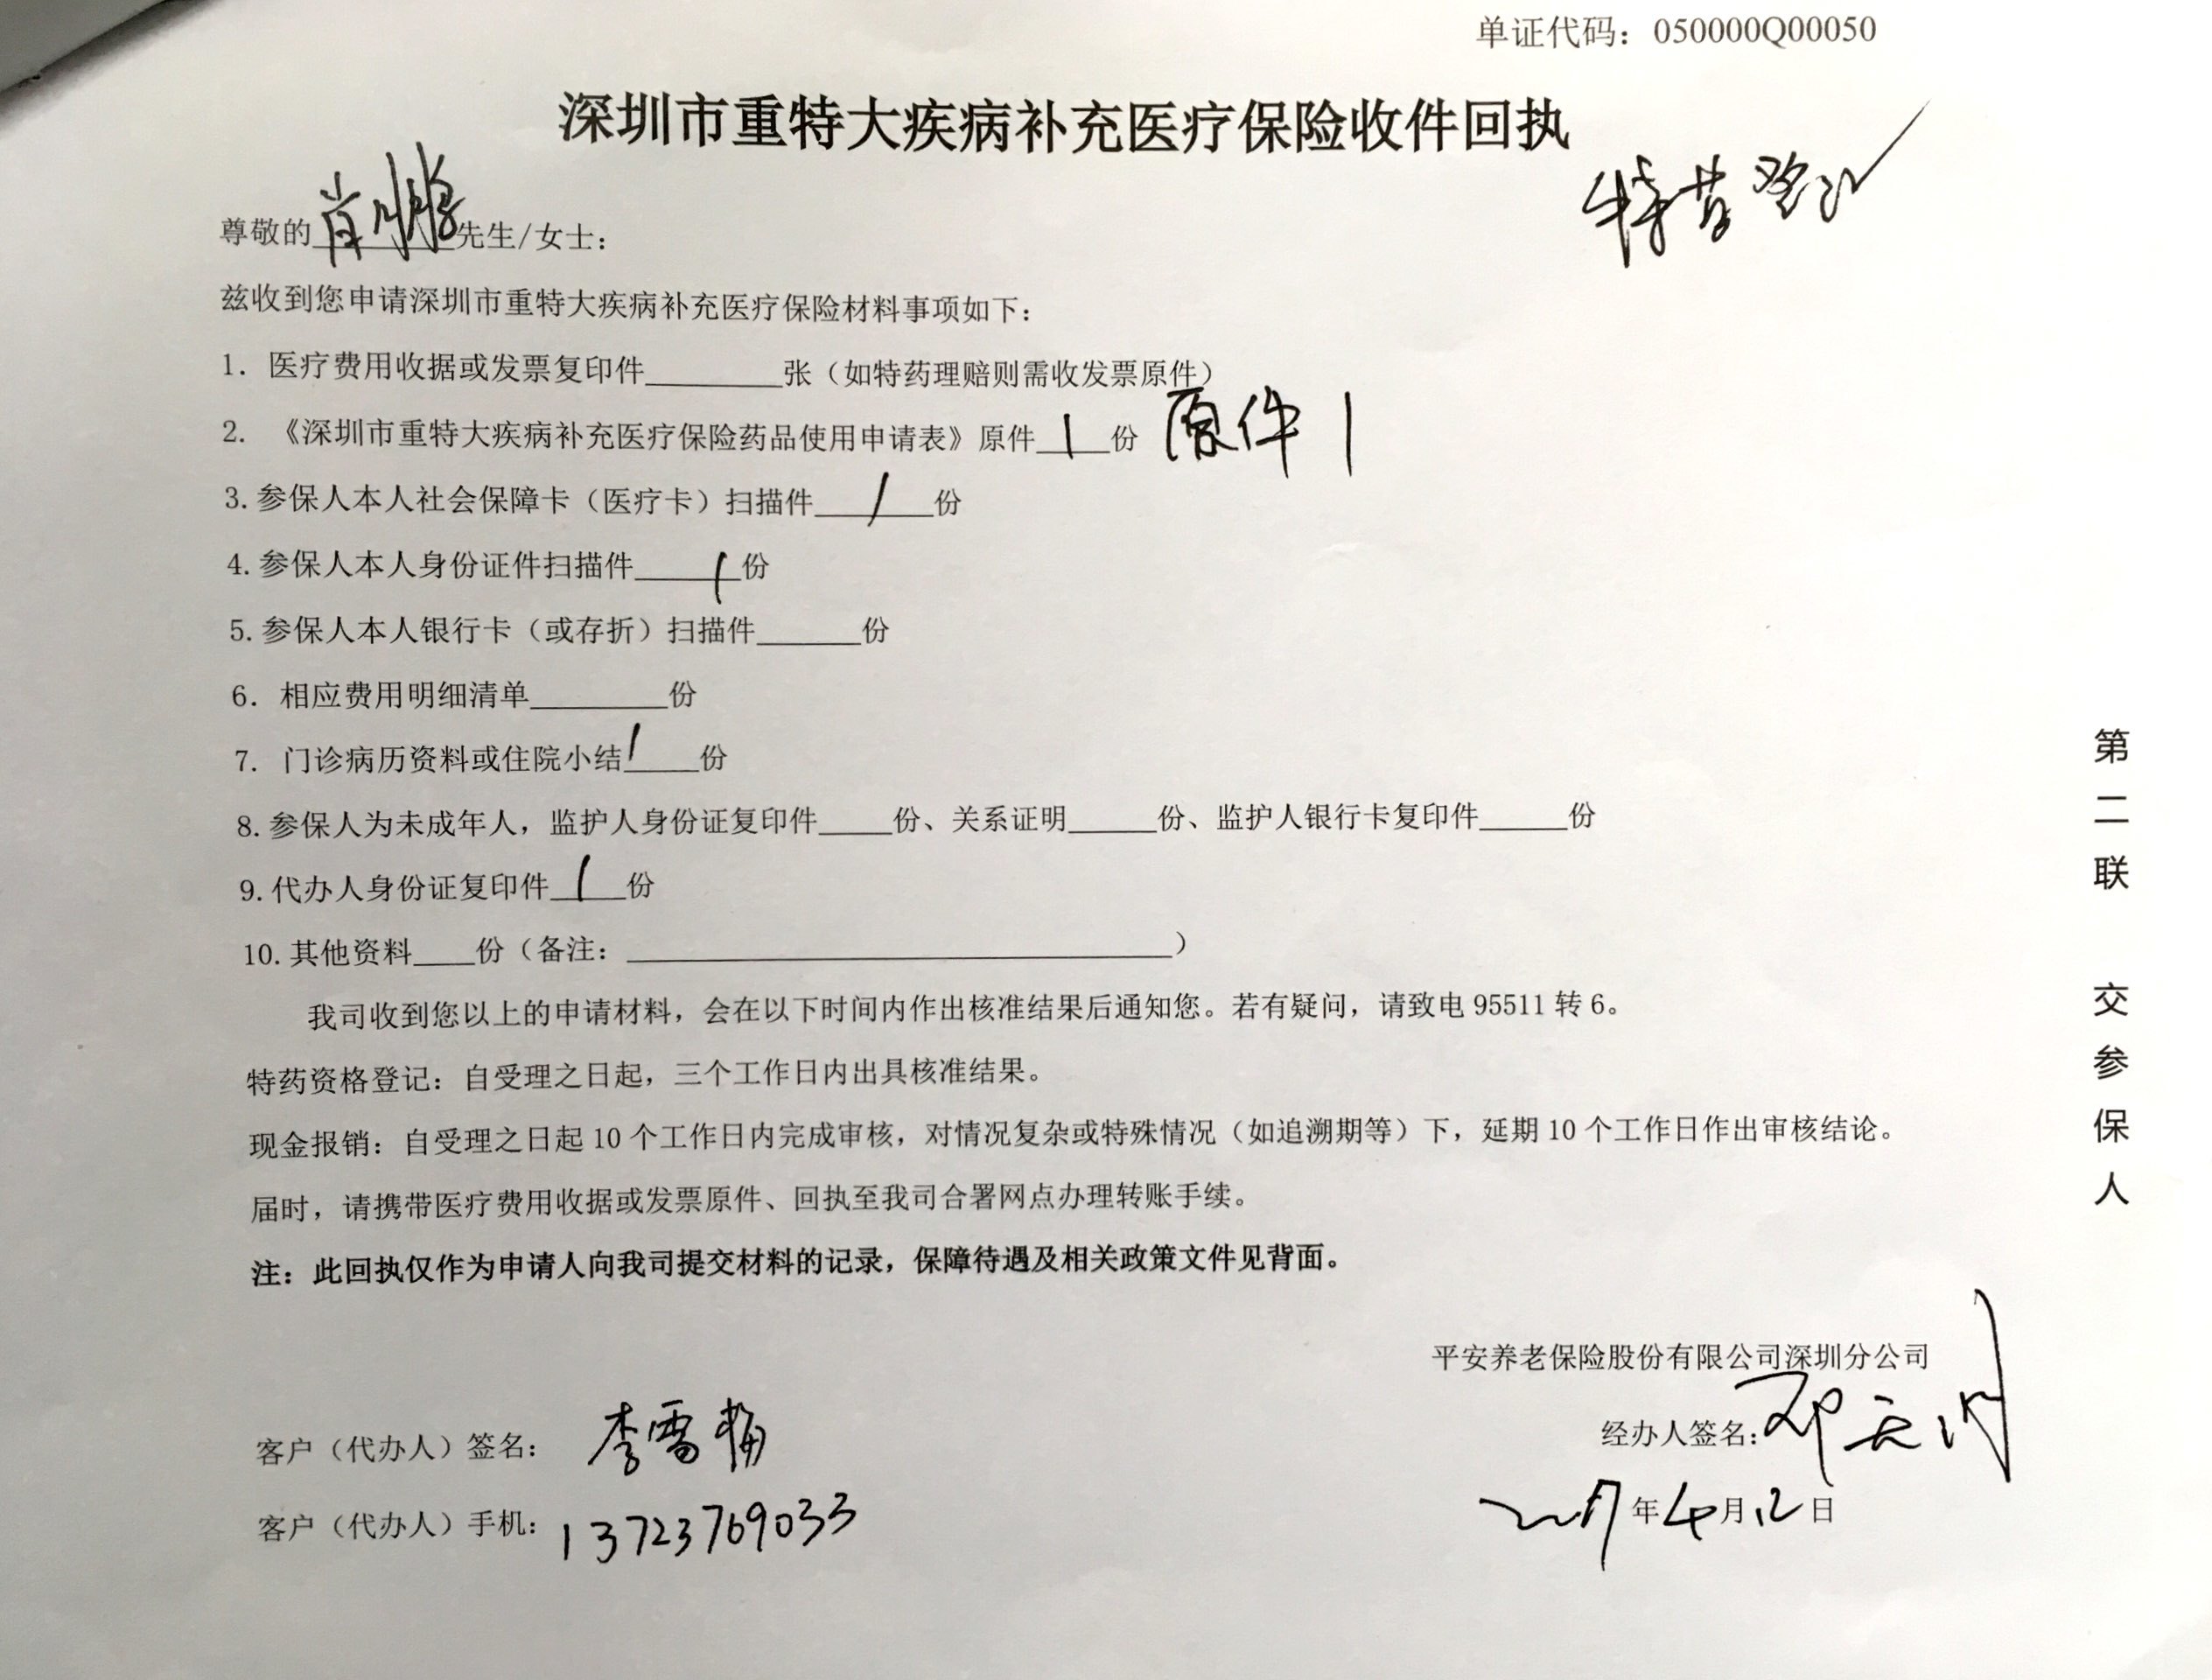 单证代码：050000Q00050
深圳市重特大疾病补充医疗保险收件回执
特药登记
尊敬的肖鹏先生/女士：
兹收到您申请深圳市重特大疾病补充医疗保险材料事项如下：
1. 医疗费用收据或发票复印件________张（如特药理赔则需收发票原件）
2. 《深圳市重特大疾病补充医疗保险药品使用申请表》原件1份 原件1
3.参保人本人社会保障卡（医疗卡）扫描件1份
4.参保人本人身份证件扫描件1份
5.参保人本人银行卡（或存折）扫描件______份
6. 相应费用明细清单________份
7. 门诊病历资料或住院小结1份
8.参保人为未成年人，监护人身份证复印件____份、关系证明_____份、监护人银行卡复印件_____份
9.代办人身份证复印件1份
10.其他资料____份（备注：________________________________）
我司收到您以上的申请材料，会在以下时间内作出核准结果后通知您。若有疑问，请致电95511转6。
特药资格登记：自受理之日起，三个工作日内出具核准结果。
现金报销：自受理之日起10个工作日内完成审核，对情况复杂或特殊情况（如追溯期等）下，延期10个工作日作出审核结论。
届时，请携带医疗费用收据或发票原件、回执至我司合署网点办理转账手续。
注：此回执仅作为申请人向我司提交材料的记录，保障待遇及相关政策文件见背面。
平安养老保险股份有限公司深圳分公司
客户（代办人）签名：李雪梅
经办人签名：邓
客户（代办人）手机：13723769033
年4月12日
第二联 交参保人